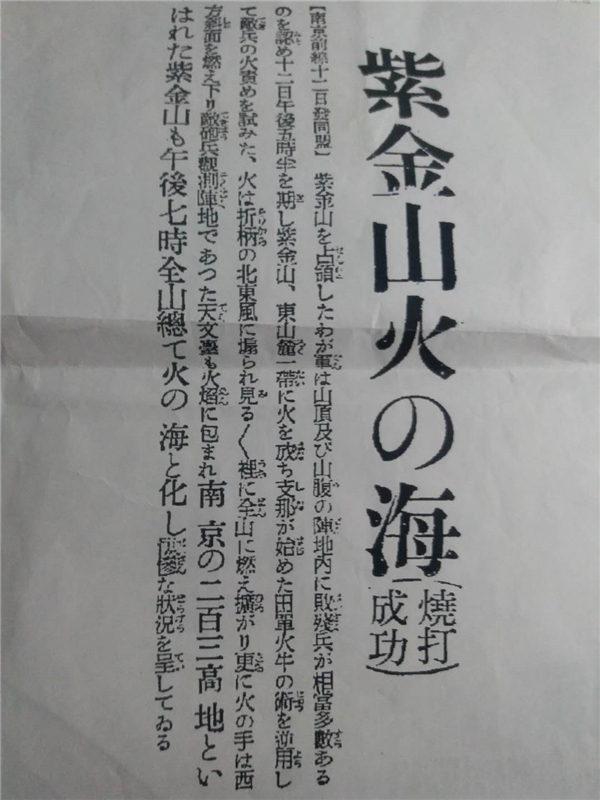 紫金山火の海
(燒打成功)
【南京前線十二日發同盟】 紫金山を占領したわが軍は山頂及び山腹の陣地內に敗殘兵が相當多數ある
のを認め十二日午後五時半を期し紫金山、東山麓一帶に火を放ち支那が始めた田單火牛の術を逆用し
て敵兵の火責めを試みた、火は折柄の北東風に煽られ見る〱裡に全山に燃え擴がり更に火の手は西
方斜面を燃え下り敵砲兵觀測陣地であつた天文臺も火焰に包まれ南京の二百三高地とい
はれた紫金山も午後七時全山總て火の海と化し悽慘な狀況を呈してゐる